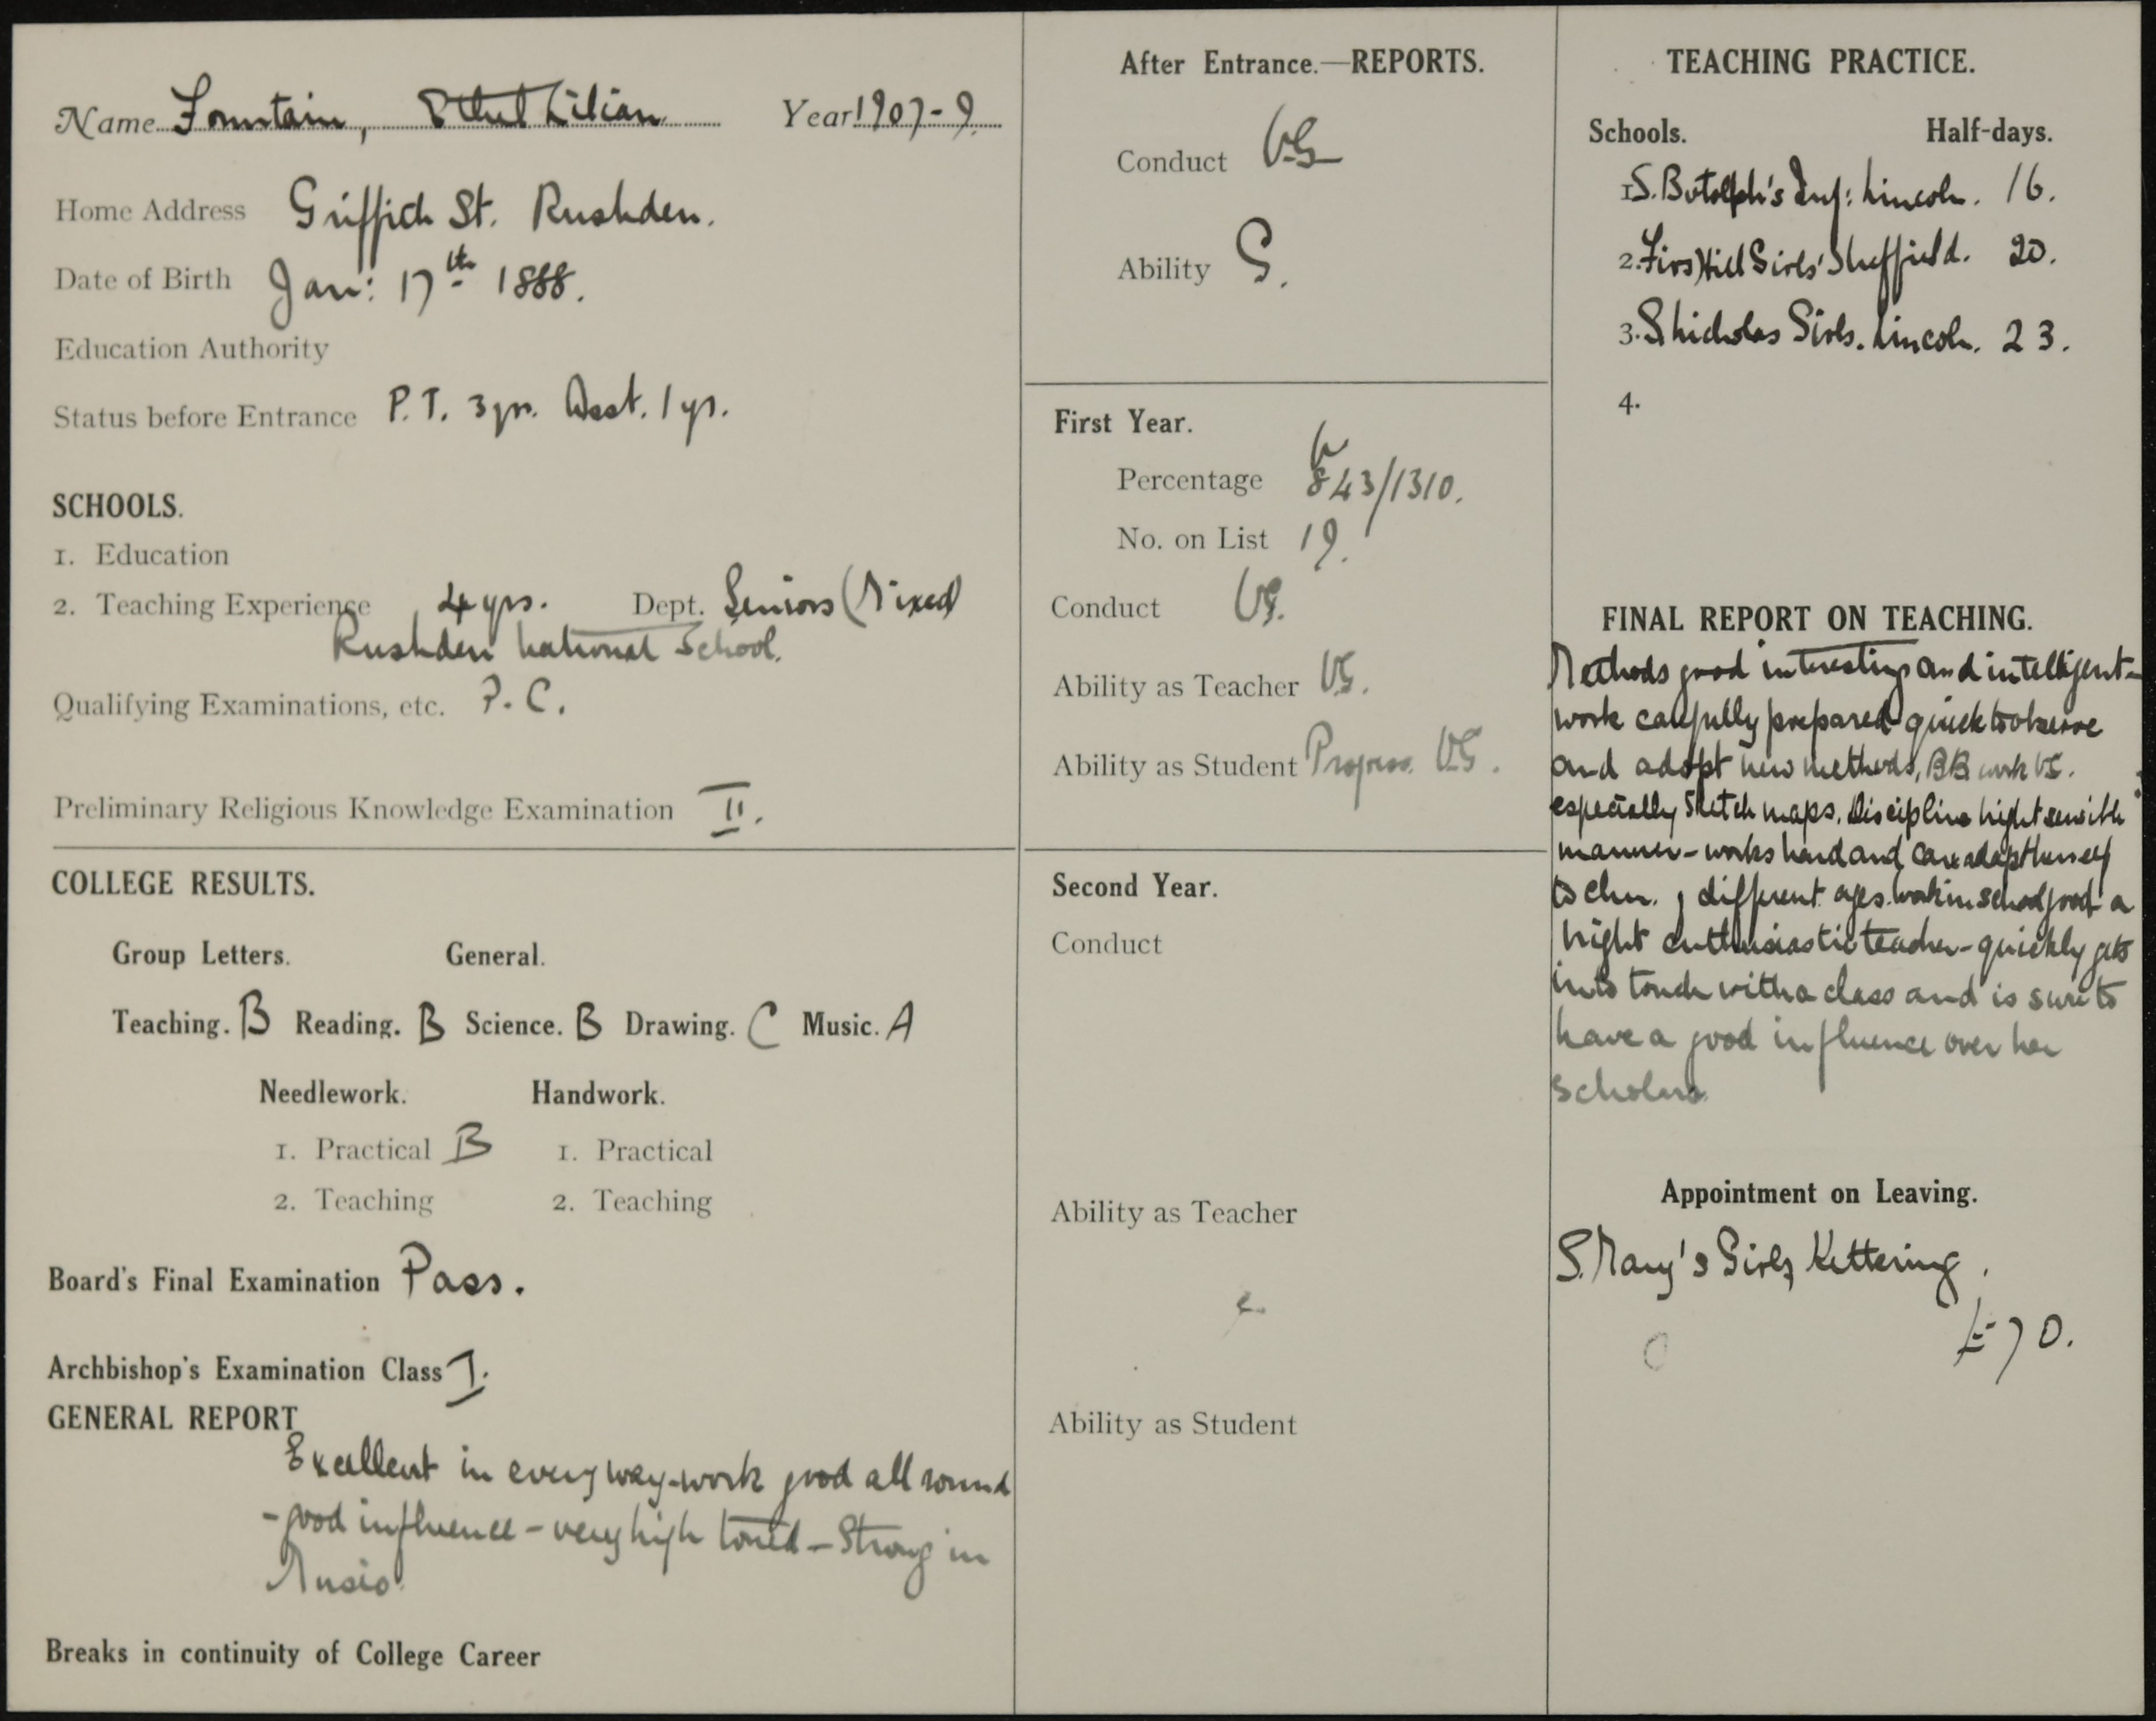 Name Fountain, Ethel Lilian Year 1907-9.
Home Address Griffith St. Rushden.
Date of Birth Jan: 17th 1888.
Education Authority
Status before Entrance P.T. 3 yrs. Asst. 1 yr.
SCHOOLS.
1. Education
2. Teaching Experience 4 yrs. Dept. Seniors (Mixed)
Rushden National School.
Qualifying Examinations, etc. P.C.
Preliminary Religious Knowledge Examination II.
COLLEGE RESULTS.
Group Letters. General.
Teaching. B Reading. B Science. B Drawing. C Music. A
Needlework. Handwork.
1. Practical B 1. Practical
2. Teaching 2. Teaching
Board's Final Examination Pass.
Archbishop's Examination Class I.
GENERAL REPORT
Excellent in every way - work good all round
- good influence - very high toned - Strong in
Music.
Breaks in continuity of College Career
After Entrance.—REPORTS.
Conduct VG
Ability G.
First Year.
Percentage 843/1310.
No. on List 19.
Conduct VG.
Ability as Teacher VG.
Ability as Student Progress. VG.
Second Year.
Conduct
Ability as Teacher
Ability as Student
TEACHING PRACTICE.
Schools. Half-days.
1. S. Botolph's Inf: Lincoln. 16.
2. Firs Hill Girls' Sheffield. 20.
3. S Nicholas Girls. Lincoln. 23.
4.
FINAL REPORT ON TEACHING.
Methods good interesting and intelligent -
work carefully prepared - quick to observe
and adopt new methods, BB work VG.
especially Sketch maps. Discipline bright sensible
manner - works hard and can adapt herself
to chn. of different ages. work in school good a
bright enthusiastic teacher - quickly gets
into touch with a class and is sure to
have a good influence over her
scholars.
Appointment on Leaving.
S. Mary's Girls, Kettering.
£70.